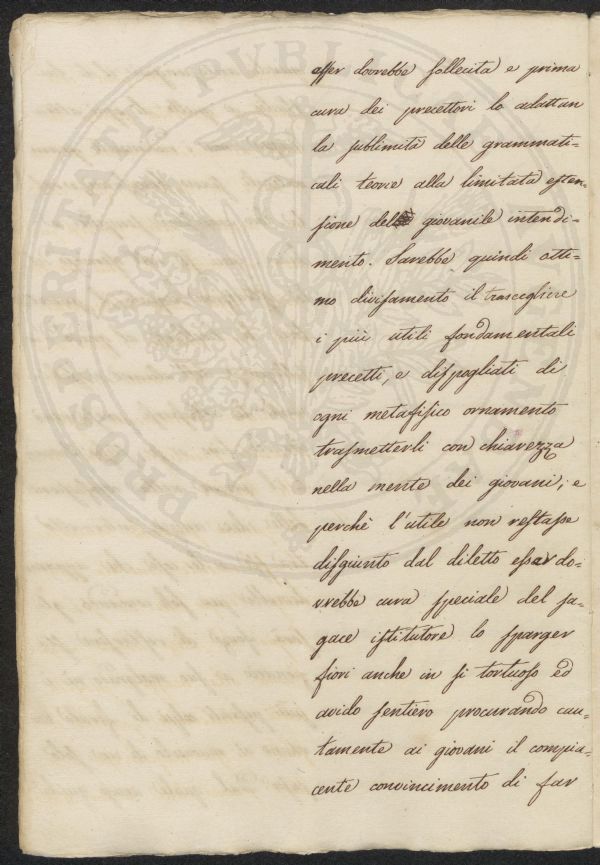 esser dovrebbe sollecita e prima
cura dei precettori lo adattar
la sublimità delle grammati=
cali teorie alla limitata esten=
sione del giovanile intendi=
mento. Sarebbe quindi otti=
mo divisamento il trascegliere
i più utili fondamentali
precetti, e dispogliati di
ogni metafisico ornamento
trasmetterli con chiarezza
nella mente dei giovani; e
perchè l'utile non restasse
disgiunto dal diletto esser do=
vrebbe cura speciale del sa=
gace istitutore lo sparger
fiori anche in sì tortuoso ed
arido sentiero procurando cau=
tamente ai giovani il compia=
cente convincimento di far
PROSPERITATI PUBLICAE